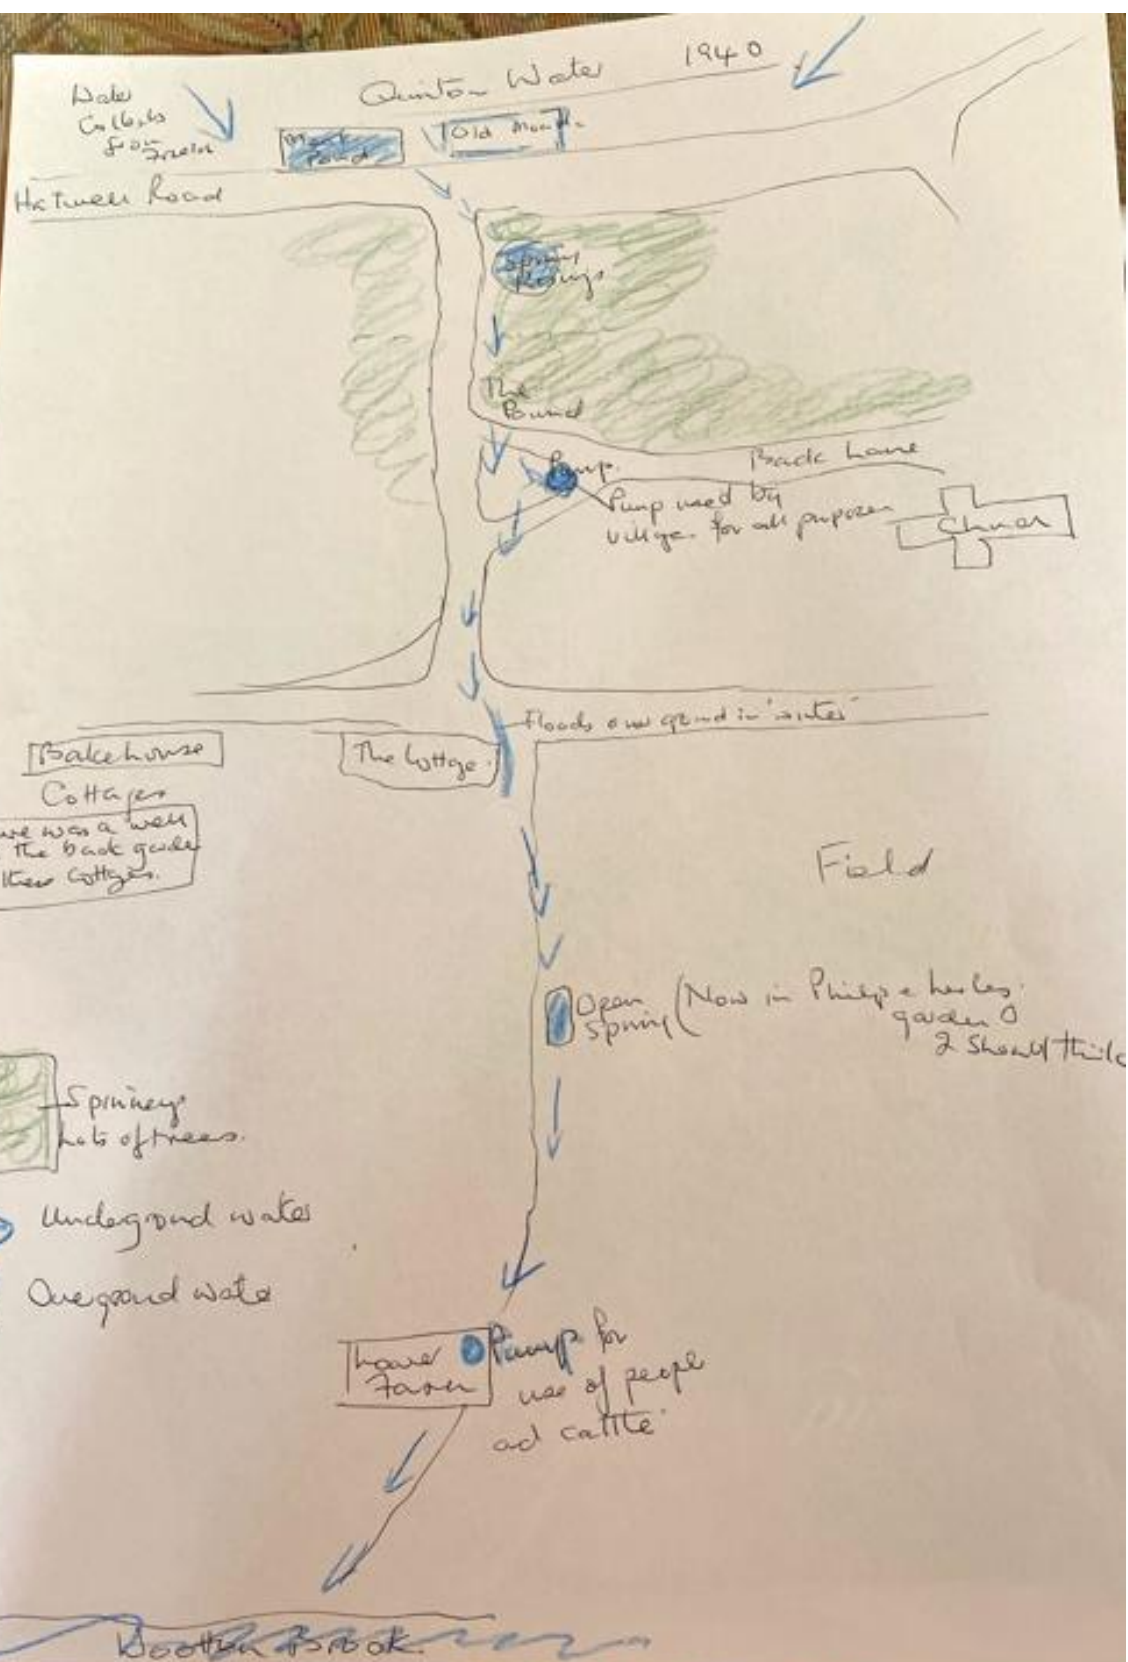 Quinton Water 1940
Water
Collects
from
Old Moat
Pond
Road
Spring
Risings
The
Pound
Back Lane
Pump.
Pump used by
village for all purposes
Church
Floods over ground in winter
Bakehouse
Cottages
The Cottage.
was a well
the back garden
these Cottages.
Field
Open
Spring
(Now in Philip &
garden
I should think
Spinneys
Lots of trees.
Underground water
Overground water
Lower
Farm
Pump for
use of people
and cattle
Wootton Brook.